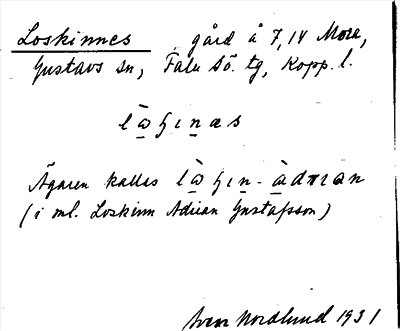 Loskinnes , gård å 7,14 Mora,
Gustavs sn, Falu Sö. tg, Kopp. l.
lɷ̀ɧɩnæs
Ägaren kallas lɷ̀ɧɩn-àdrɩan
(i ml. Loskinn Adrian Gustafsson)
Sven Nordlund 1931